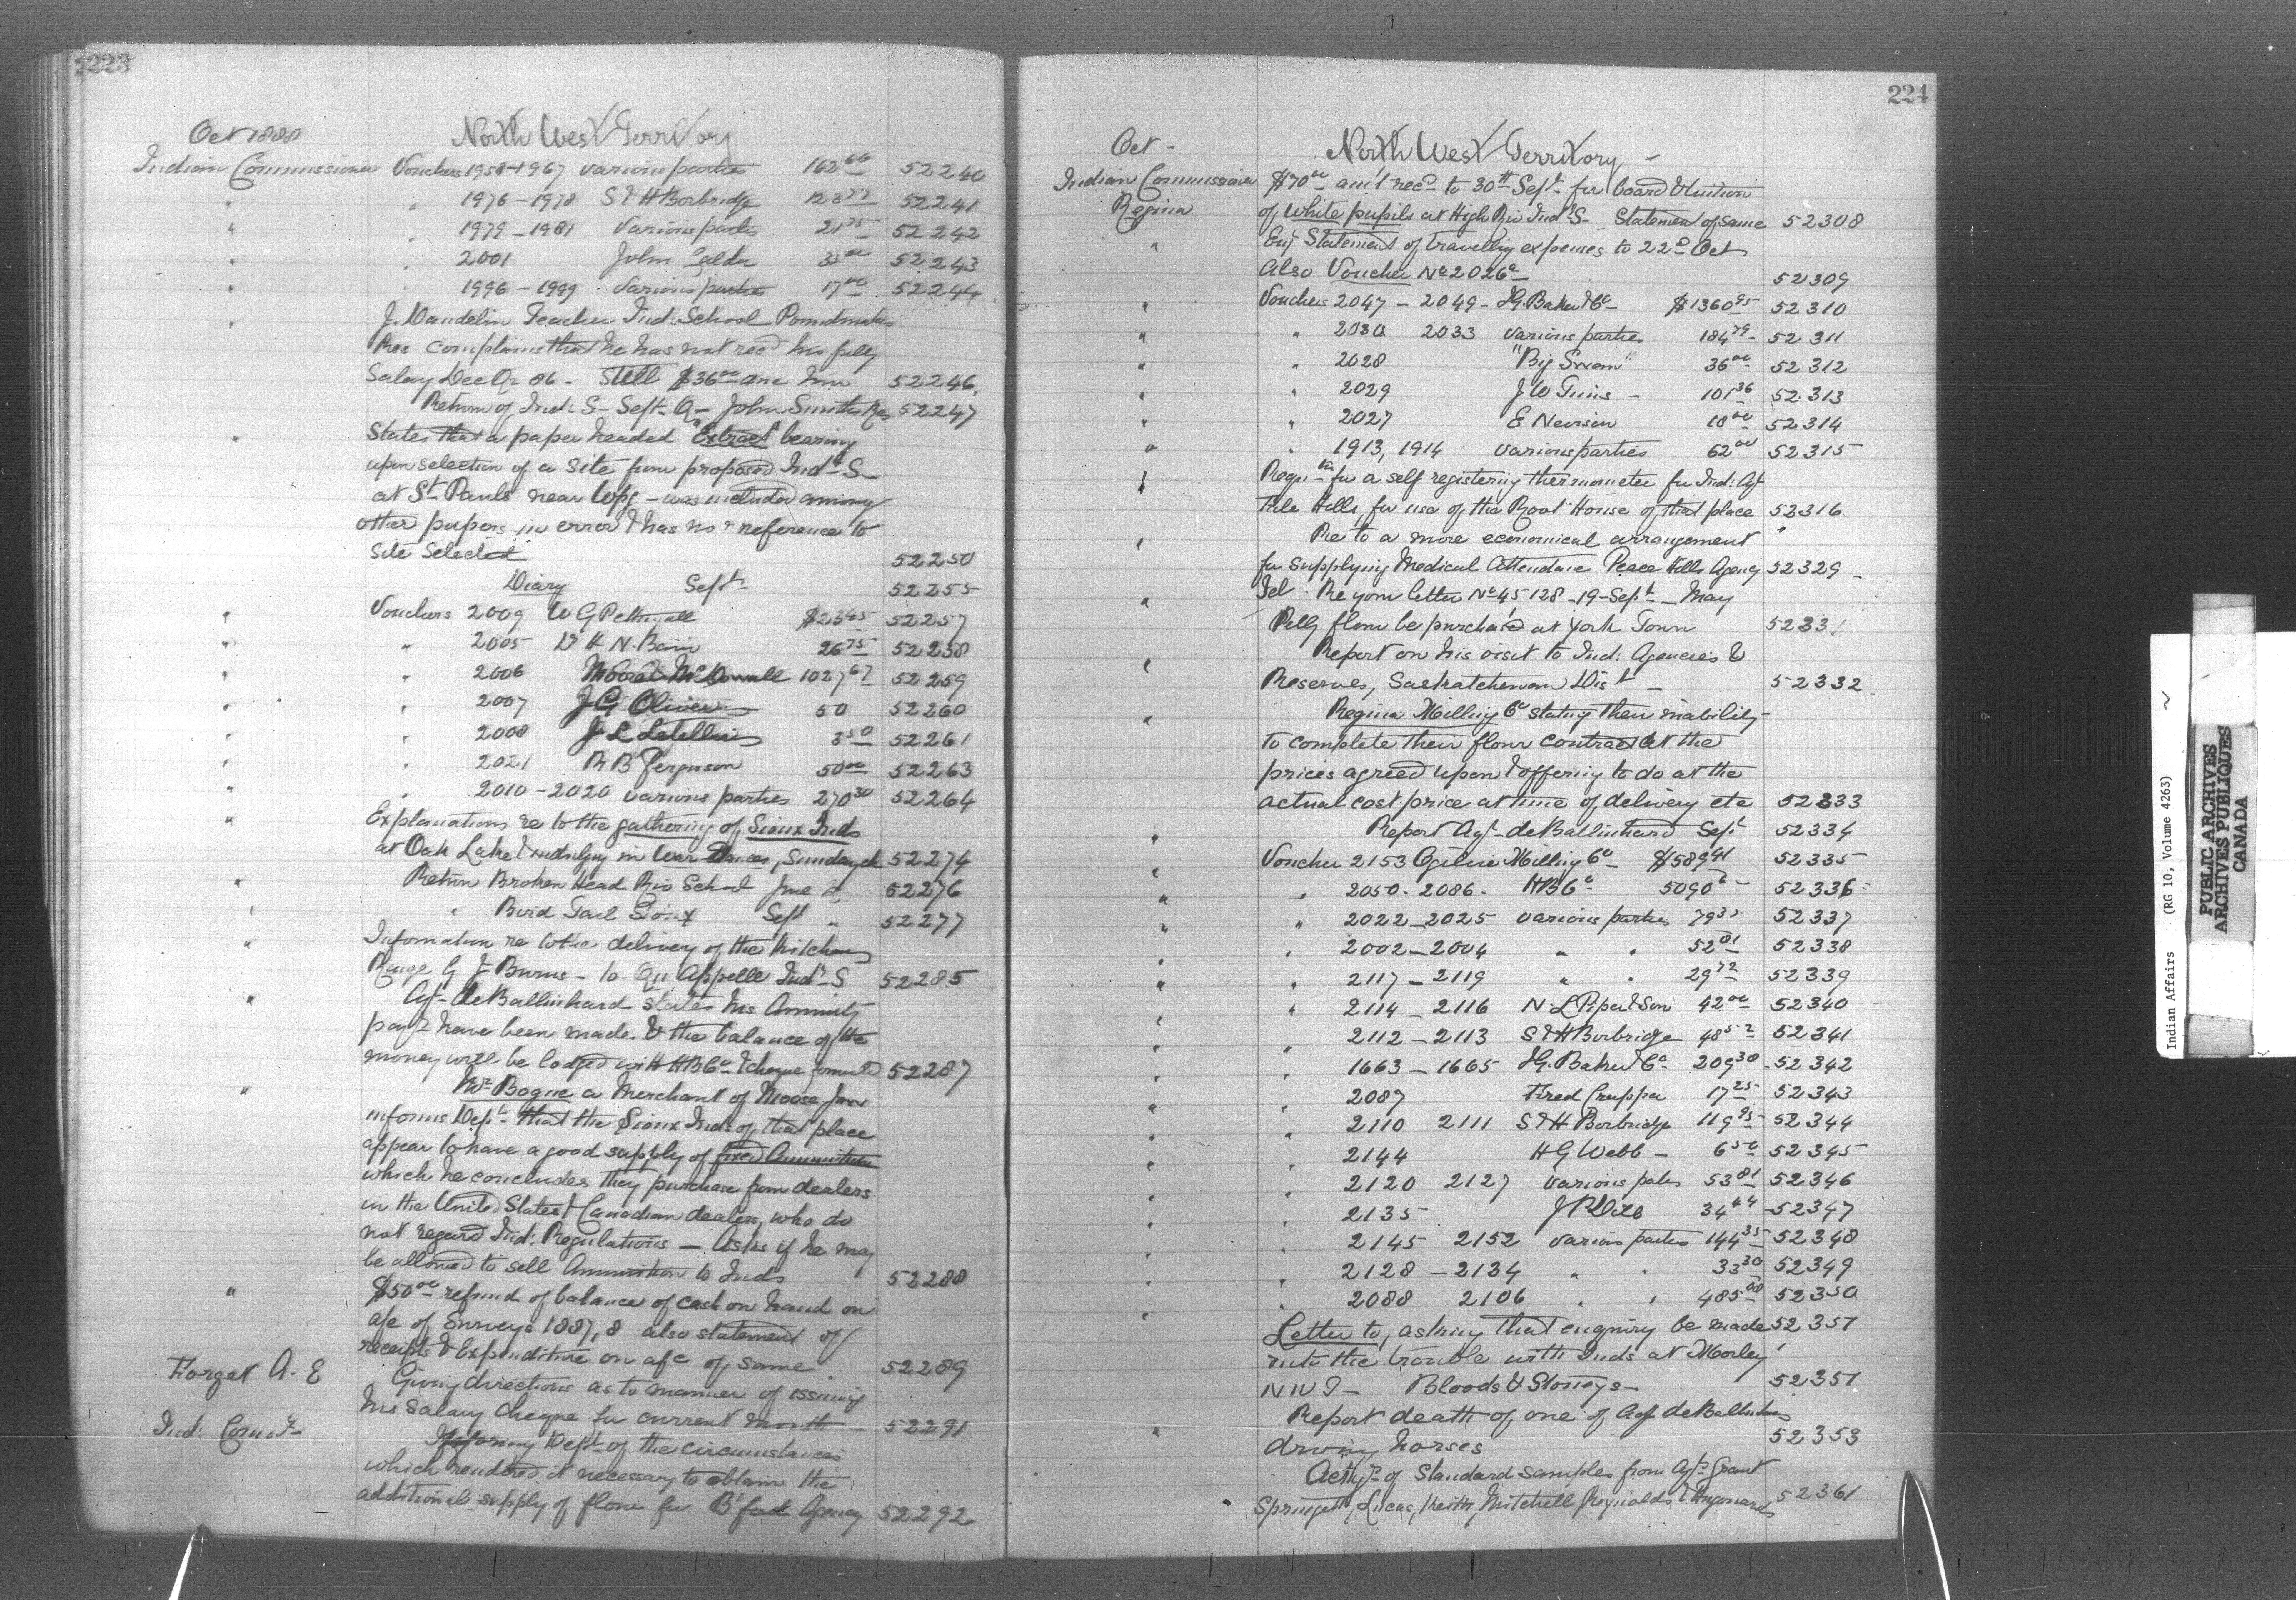 223
Oct 1888 North West Territory
Indian Commissioner Vouchers 1958-1967 various parties 162 66 52240
" " 1976-1978 S & H Borbridge 123 77 52241
" " 1979-1981 Various parties 21 75 52242
" " 2001 John Calder 52243
" " 1996-1999 Various parties 17 00 52244
" J. Dandelin Teacher Ind: School Poundmakers
Res complains that he has not rec'd his full
Salary Dec Qr 86 - Still $36 00 due him 52246
Return of Ind: S - Sept Q - John Smiths Res 52247
" States that a paper headed "Extract" bearing
upon selection of a site for proposed Ind: S
at St Pauls near Wpg - was included among
other papers in error & has no reference to
site selected 52250
Diary Sept 52255
" Vouchers 2009 W G Pettingall $23 45 52257
" " 2005 Dr H N. Bain 26 75 52258
" " 2006 Moore & McDowall 1027 67 52259
" " 2007 J G Oliver 50 52260
" " 2008 J L Letellier 3 50 52261
" " 2021 R B Ferguson 50 00 52263
" " 2010-2020 various parties 270 30 52264
" Explanations re to the gathering of Sioux Inds
at Oak Lake & indulging in War Dances, Sunday &c 52274
" Return Broken Head Riv School June Q 52276
" " Bird Tail Sioux Sept " 52277
" Information re to the delivery of the Kitchen
Range G J Burns - to Qu Appelle Indl S 52285
" Agt deBallinhard states his Annuity
payts have been made & the balance of the
money will be lodged with HBCo & cheque forwarded 52287
" Mr Bogue a Merchant of Moose Jaw
informs Dept that the Sioux Inds of that place
appear to have a good supply of fixed Ammunition
which he concludes they purchase from dealers
in the United States & Canadian dealers, who do
not regard Ind: Regulations - Asks if he may
be allowed to sell Ammunition to Inds 52288
" $50 00 refund of balance of cash on hand on
a/c of Surveys 1887,8 also statement of
receipts & Expenditure on a/c of same 52289
Forget A. E Giving directions as to manner of issuing
his Salary Cheque for current month - 52291
Ind: Comr Informing Dept of the circumstances
which rendered it necessary to obtain the
additional supply of flour for B'ford Agency 52292
224
Oct - North West Territory -
Indian Commissioner $70 00 am't rec'd to 30th Sept for board & tuition
Regina of White pupils at High Riv Ind: S - Statement of same 52308
" Enc Statement of travelling expenses to 22nd Oct
Also Voucher No 2026a 52309
" Vouchers 2047 - 2049 - I G. Baker & Co $1360 95 52310
" " 2030 2033 Various parties 184 79 52311
" " 2028 "Big Swan" 36 00 52312
" " 2029 J W Tims - 101 36 52313
" " 2027 E Nevison 18 00 52314
" " 1913, 1914 various parties 62 00 52315
" Requn for a self registering thermometer for Ind: Agt
File Hills, for use of the Root House of that place 52316
" Re to a more economical arrangement
for supplying Medical Attendance Peace Hills Agency 52329
" Tel. Re your letter No 45128 - 19 - Sept - May
Pelly flour be purchased at York Town 5233
" Report on his visit to Ind: Agencies &
Reserves, Saskatchewan Dist - 52332
" Regina Milling Co stating their inability
to complete their flour contract at the
prices agreed upon & offering to do at the
actual cost price at time of delivery etc 52333
" Report Agt deBallinhard Sept 52334
" Voucher 2153 Ogilvie Milling Co $589 41 52335
" " 2050 - 2086 - HBCo 5090 52336
" " 2022 - 2025 various parties 79 35 52337
" " 2002 - 2004 " " 52 81 52338
" " 2117 - 2119 " " 29 72 52339
" " 2114 - 2116 N L Piper & Son 42 00 52340
" " 2112 - 2113 S & H Borbridge 48 52 52341
" " 1663 - 1665 I G. Baker & Co 209 30 52342
" " 2087 Fred Crupper 17 25 52343
" " 2110 2111 S & H Borbridge 119 95 52344
" " 2144 H G Webb - 6 50 52345
" " 2120 2127 various parties 53 81 52346
" " 2135 34 44 52347
" " 2145 2152 Various parties 144 35 52348
" " 2128 - 2134 " " 33 30 52349
" " 2088 2106 " " 485 00 52350
" Letter to, asking that enquiry be made 52351
into the trouble with Inds at Morley
N W T - Bloods & Stoneys - 52351
" Report death of one of Agt deBallinhards
driving horses 52353
Ackg of Standard samples from Agts Grant
Springett, Lucas, Keith, Mitchell Reynolds & 52361
Indian Affairs (RG 10, Volume 4263)
PUBLIC ARCHIVES
ARCHIVES PUBLIQUES
CANADA